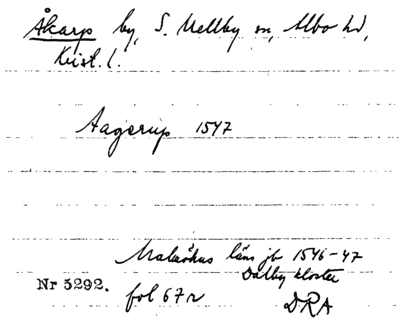 Åkarp by, S. Mellby sn, Albo hd,
Krist. l.
Aagerup 1547
Malmöhus läns jb 1546-47
Dalby kloster
Nr 5292.
fol 67r
DRA